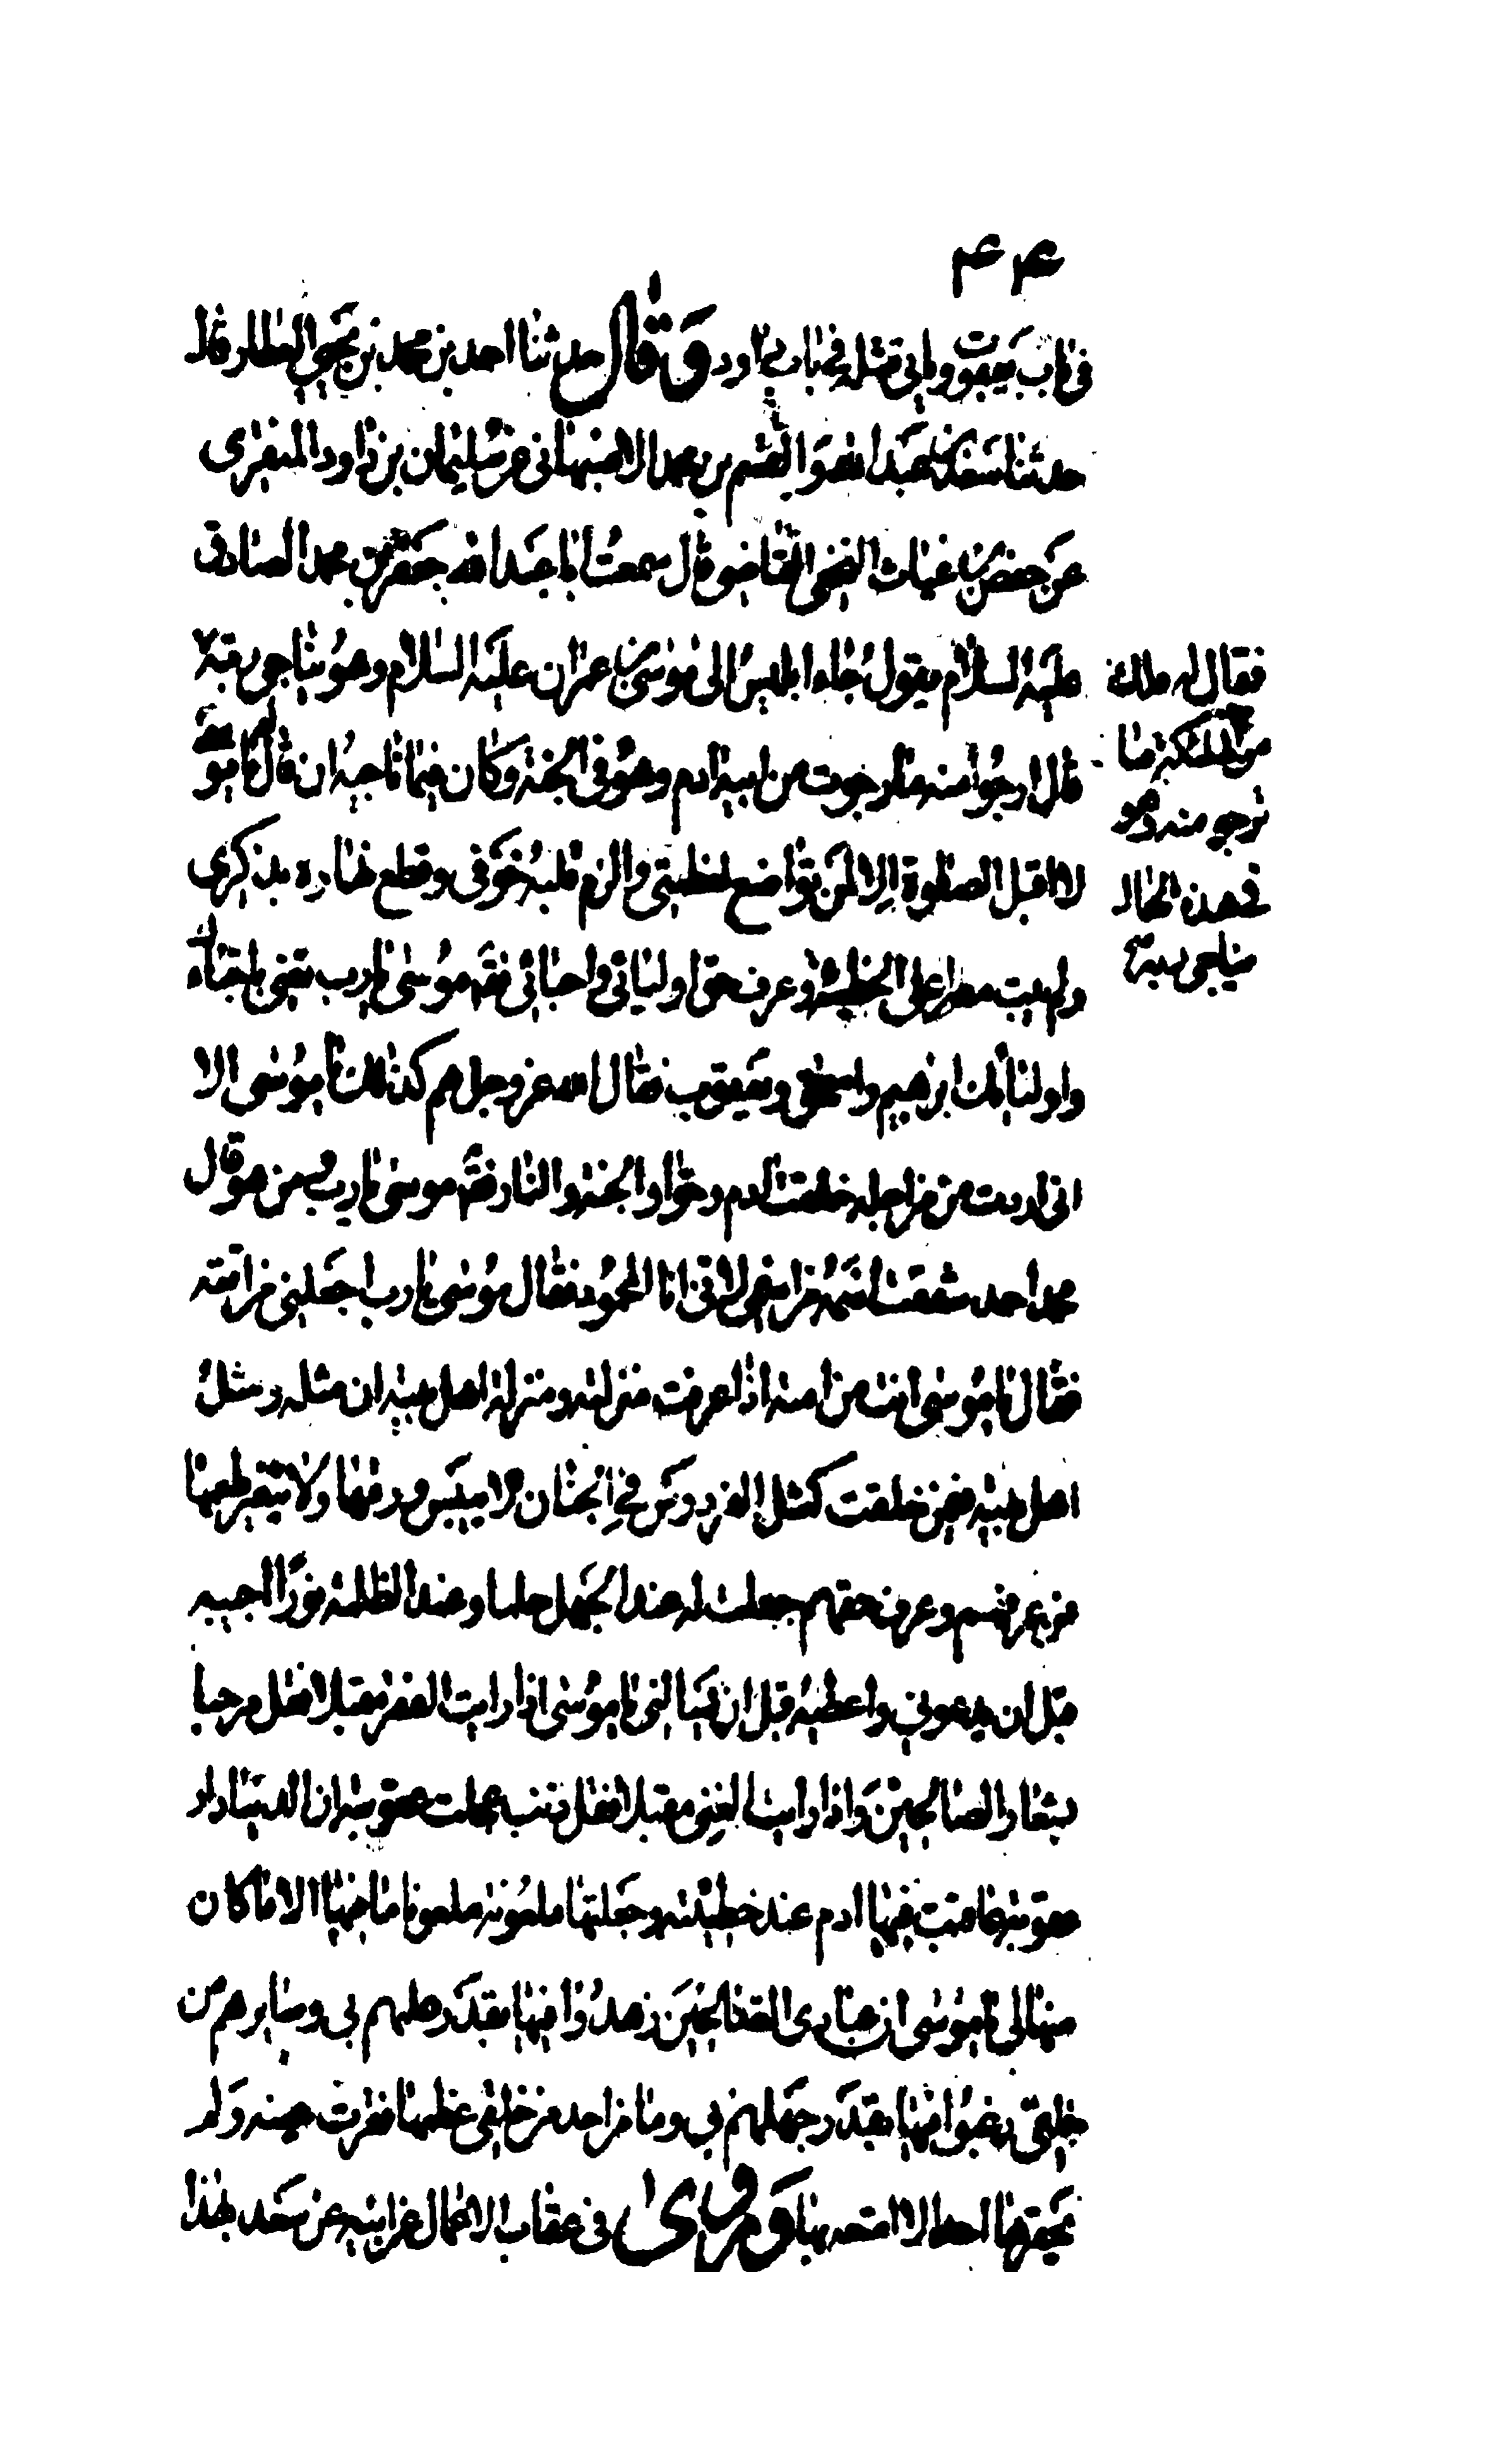 ۴۴
في باب يعقوب وياتي مثله في باب داود وَقٰال حدثنا احمد بن محمد بن يحيى العطار قال
حدثنا سعد بن عبد الله عن القسم بن محمد الاصبهاني عن سليمان بن داود المنقرى
عن حفص بن غياث النخعي القاضي قال سمعت ابا عبد الله جعفر بن محمد الصادق
عليه السلام يقول جاء ابليس الى موسى بن عمران عليه السلام وهو يناجي ربه
فقال له ملك
من الملئكة ما
ترجو منه وهو
في هذه الحال
يناجى ربه
قال ارجوا منه ما رجوت من ابيه ادم وهو في الجنة وكان فيما ناجيه ان قال له يا موسى
لا اقبل الصلوة الا لمن تواضع لعظمتي والزم قلبه خوفى وقطع نهاره بذكرى
ولم يبت مصرا على الخطيئة وعرف حق اوليائي واحبائي فقال موسى يا رب تعني باحبائك
واوليائك ابرهيم واسحق ويعقوب فقال الله عز وجل هم كذلك يا موسى الا
اني اردت من من اجله خلقت ادم وحوا والجنة والنار فقال موسى يا رب ومن هو قال
محمد احمد شققت اسمه من اسمي لاني انا المحمود فقال موسى يا رب اجعلني من امته
فقال يا موسى انت من امته اذا عرفت منزلته ومنزلة اهل بيته ان مثله ومثل
اهل بيته فيمن خلقت كمثل الفردوس في الجنان لا ييبس ورقها ولا يتغير طعمها
فمن عرفهم وعرف حقهم جعلت له عند الجهل حلما وعند الظلمة نورا اجيبه
قبل ان يدعوني واعطيه قبل ان يسالني يا موسى اذا رايت الفقر مقبلا فقل مرحبا
بشعار الصالحين واذا رايت الغنى مقبلا فقل ذنب عجلت عقوبته ان الدنيا دار
عقوبة عاقبت فيها ادم عند خطيئته وجعلتها ملعونة ملعونا ما فيها الا ما كان
منها لي يا موسى ان عبادي الصالحين زهدوا فيها بقدر علمهم بي وسايرهم من
خلقي رغبوا فيها بقدر جهلهم بي وما من احد من خلقي عظمها فقرت عينه ولم
يحقرها احد الا انتفع بها وَروىٰ في عقاب الاعمال عن ابيه عن سعد بهذا